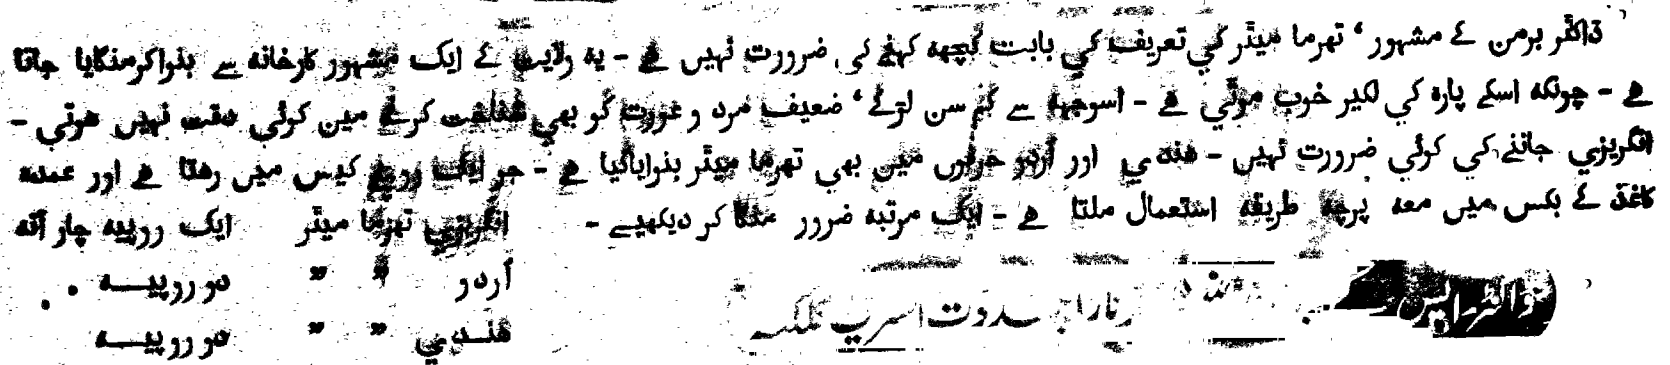 ڈاکٹر برمن کے مشہور ‘ تھرما میٹر کي تعریف کي بابت کچھہ کہنے کی ضرورت نہیں ھے - یہ ولایت کے ایک مشہور کارخانہ سے بنواکر منگایا جاتا
ھے - چونکہ اسکے پارہ کي لکیر خوب موٹي ھے - اسوجہہ سے کم سن لڑکے ‘ ضعیف مرد و عورت کو بھي شناخت کرنے میں کوئي دقت نہیں ھوتي -
انگریزي جاننے کي کوئي ضرورت نہیں - ھندي اور اُردو حرفوں میں بھی تھرما میٹر بنوایاگیا ھے - جو ایک کیس میں رھتا ھے اور عمدہ
کاغذ کے بکس میں معہ پرچہ طریقہ استعمال ملتا ھے - ایک مرتبہ ضرور منگا کر دیکھیے -
انگریزي تھرما میٹر ایک روپیہ چار آنہ
اُردو ” ” دو روپیــہ
ھندي ” ” دو روپیــہ
ڈاکٹر ایس تارا دت اسٹریٹ کلکتہ